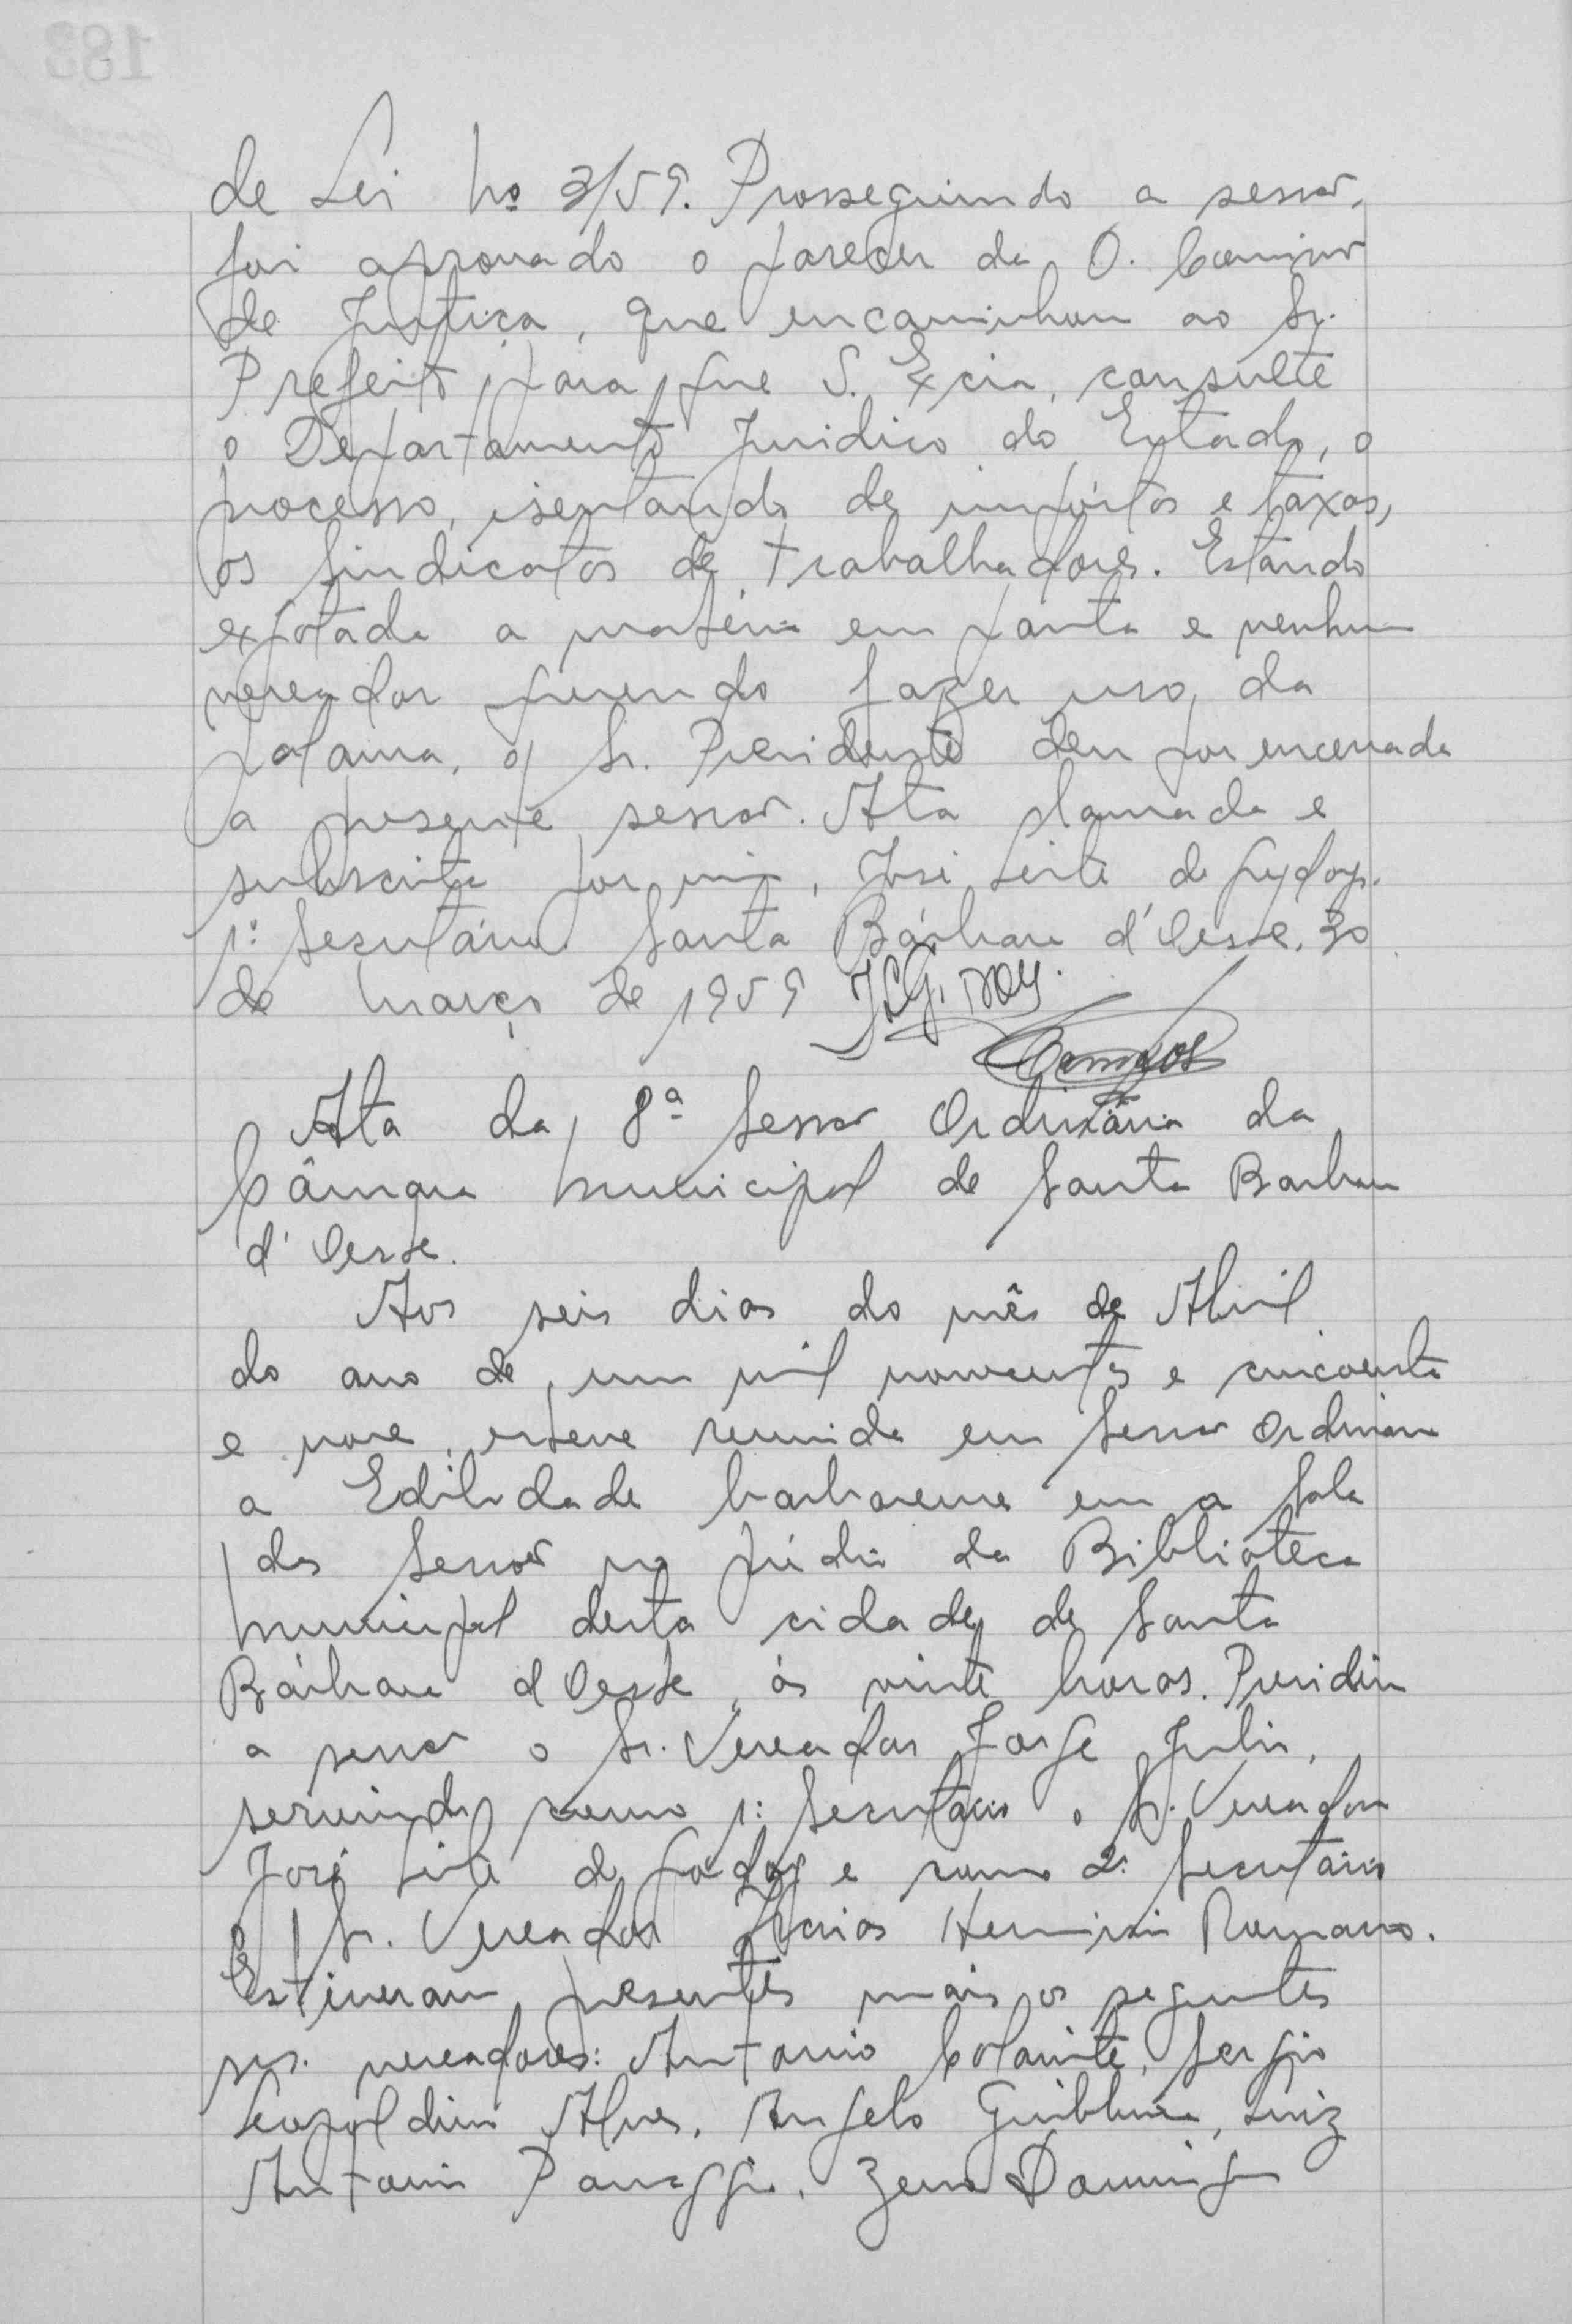 de Lei Nº 3/59. Prosseguindo a sessão,
foi aprovado o parecer da D. Comissão
de Justiça, que encaminhou ao Sr.
Prefeito, para que S. Excia, consulte
o Departamento Juridico do Estado, o
processo, isentando de impôstos e taxas,
os Sindicatos de trabalhadores. Estando
exgotada a matéria em pauta e nenhum
vereador querendo fazer uso, da
palavra, o Sr. Presidente deu por encerrada
a presente sessão. Ata lavrada e
subscrita por mim, José Leite de Godoy.
1º Secretário. Santa Bárbara d'Oeste, 30
de Março de 1959
Ata da 8ª Sessão Ordinária da
Câmara Municipal de Santa Barbara
d'Oeste.
Aos seis dias do mês de Abril
do ano de um mil novecentos e cincoenta
e nove, esteve reunida em Sessão Ordinária
a Edilidade barbarense em a Sala
das Sessões no prédio da Biblioteca
Municipal desta cidade, de Santa
Bárbara d'Oeste, às vinte horas. Presidiu
a sessão o Sr. Vereador Jorge Julio,
servindo como 1º Secretário o Sr. Vereador
José Leite de Godoy e como 2º Secretário
o Sr. Vereador Herminio Romano.
Estiveram presentes mais os seguintes
srs. vereadores: Antonio Colarite, Sergio
Leopoldino Alves, Angelo Luiz
Antonio Panaggio, Zeno Domingo